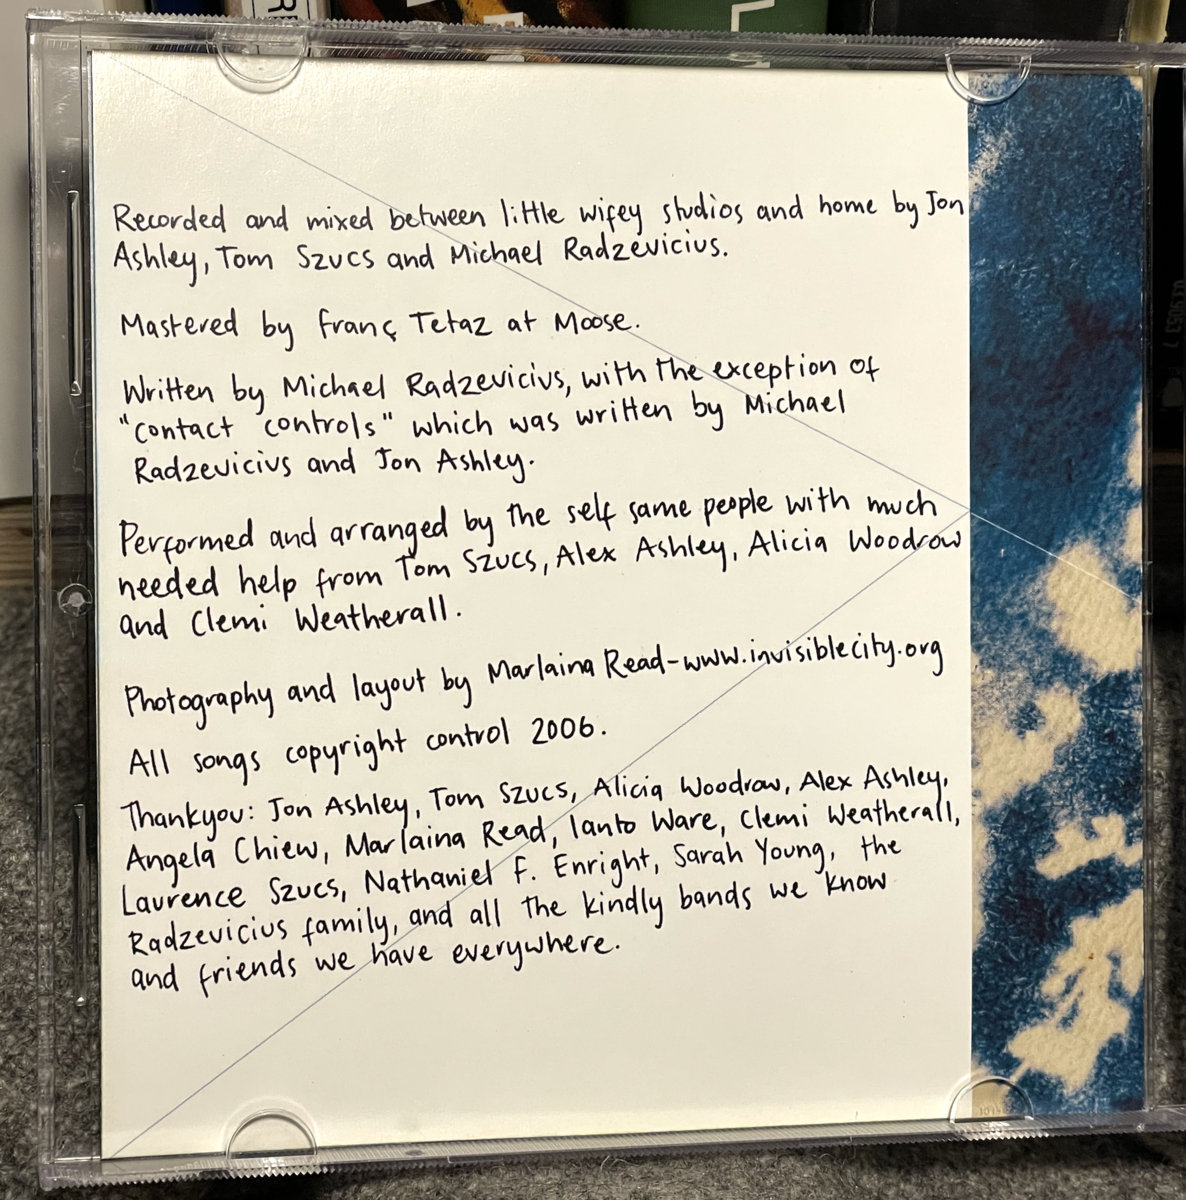 Recorded and mixed between little wifey studios and home by Jon
Ashley, Tom Szucs and Michael Radzevicius.
Mastered by Franç Tetaz at Moose.
Written by Michael Radzevicius, with the exception of
"contact controls" which was written by Michael
Radzevicius and Jon Ashley.
Performed and arranged by the self same people with much
needed help from Tom Szucs, Alex Ashley, Alicia Woodrow
and Clemi Weatherall.
Photography and layout by Marlaina Read-www.invisiblecity.org
All songs copyright control 2006.
Thankyou: Jon Ashley, Tom Szucs, Alicia Woodrow, Alex Ashley,
Angela Chiew, Marlaina Read, Ianto Ware, Clemi Weatherall,
Laurence Szucs, Nathaniel F. Enright, Sarah Young, the
Radzevicius family, and all the kindly bands we know
and friends we have everywhere.